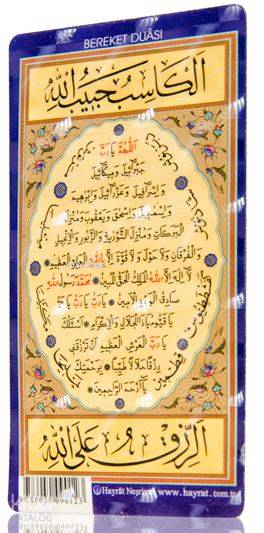 BEREKET DUÂSI
اَلْكَاسِبُ حَبِيبُ اللهِ
اَللّٰهُمَّ يَا رَبَّ
جَبْرَائِيلَ وَمِيكَائِيلَ
وَاِسْرَافِيلَ وَعَزْرَائِيلَ وَاِبْرٰهِيمَ
وَاِسْمٰعِيلَ وَاِسْحٰقَ وَيَعْقُوبَ وَمُنْزِلَ
الْبَرَكَاتِ وَمُنْزِلَ التَّوْرٰيةِ وَالزَّبُورِ وَالْاِنْجِيلِ
وَالْفُرْقَانِ وَلَا حَوْلَ وَلَا قُوَّةَ اِلَّا بِاللّٰهِ الْعَلِيِّ الْعَظِيمِ
لَا اِلٰهَ اِلَّا اللّٰهُ الْمَلِكُ الْحَقُّ الْمُبِينُ مُحَمَّدٌ رَسُولُ اللّٰهِ
صَادِقُ الْوَعْدِ الْاَمِينُ يَا رَبِّ يَا رَبِّ يَا حَيُّ
يَا قَيُّومُ يَا ذَا الْجَلَالِ وَالْاِكْرَامِ اَسْئَلُكَ
يَا رَبَّ الْعَرْشِ الْعَظِيمِ اَنْ تَرْزُقَنِي
رِزْقًا حَلَالًا طَيِّبًا بِرَحْمَتِكَ
يَا اَرْحَمَ الرَّاحِمِينَ
اَلرِّزْقُ عَلَى اللهِ
Hayrât Neşriyat www.hayrat.com.tr